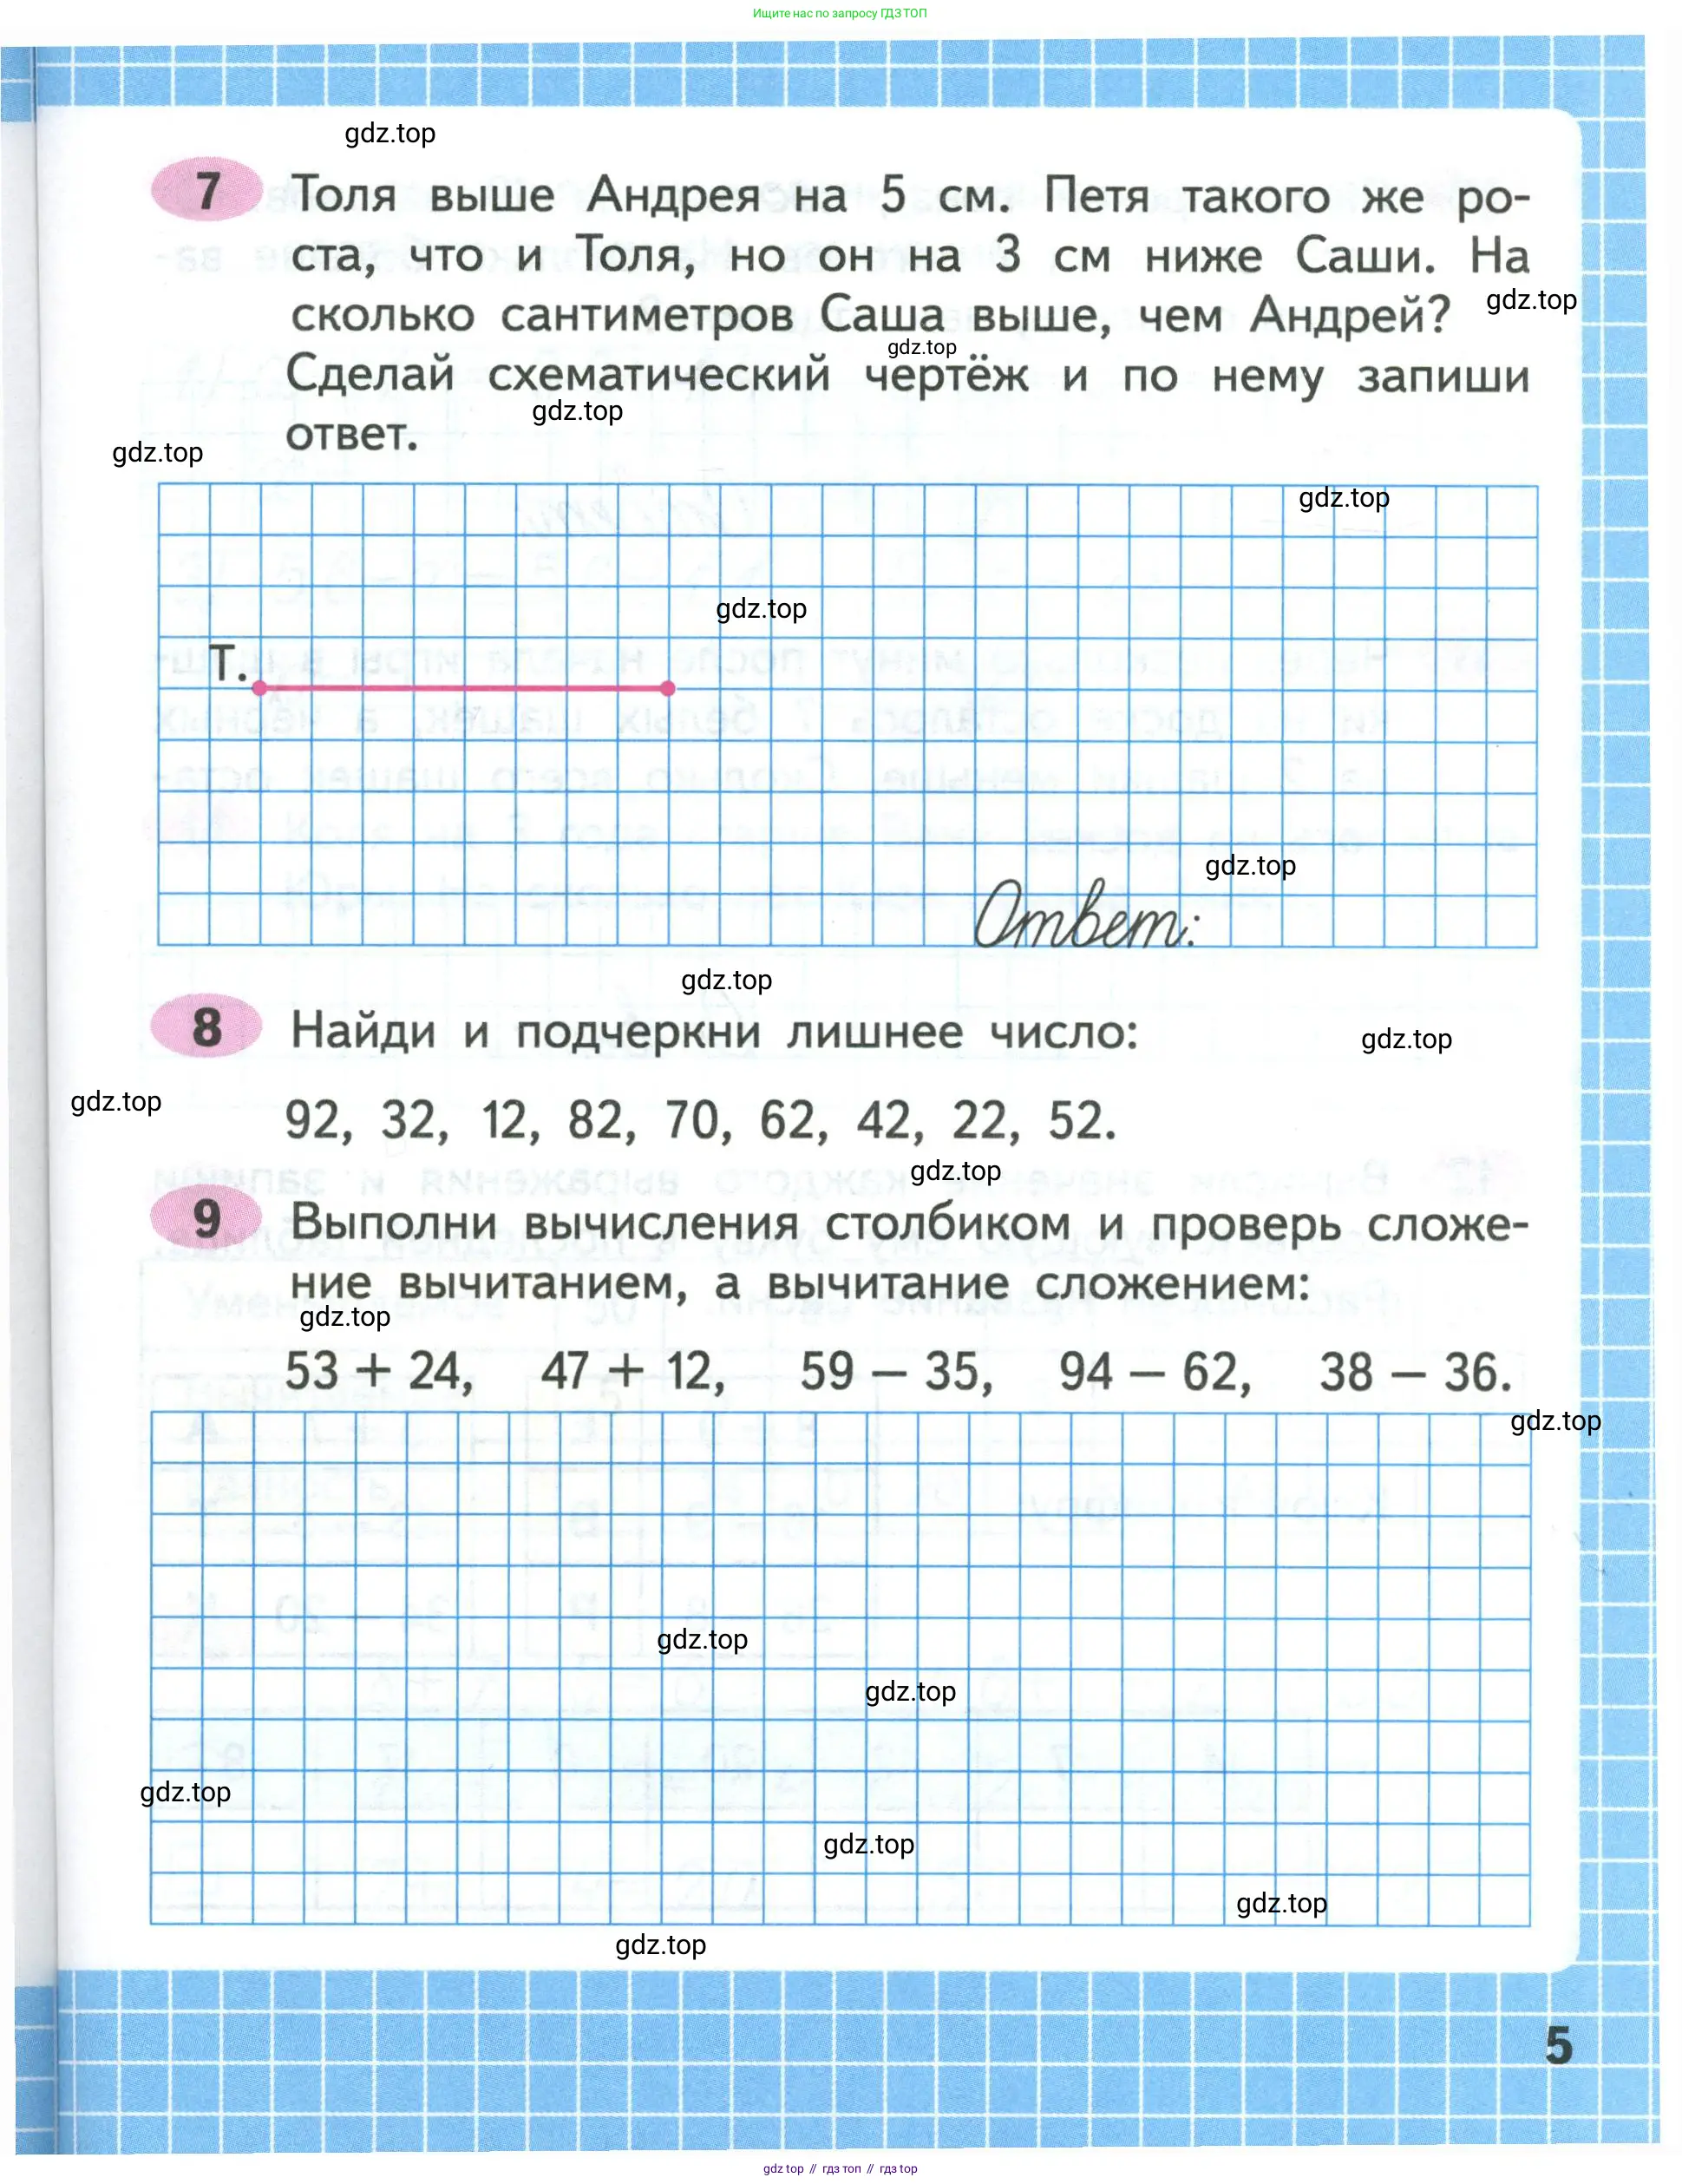 Ищите нас по запросу ГДЗ ТОП
gdz.top
7 Толя выше Андрея на 5 см. Петя такого же ро-
ста, что и Толя, но он на 3 см ниже Саши. На
gdz.top
сколько сантиметров Саша выше, чем Андрей?
gdz.top
Сделай схематический чертёж и по нему запиши
gdz.top
ответ.
gdz.top
gdz.top
gdz.top
Т.
gdz.top
Ответ:
gdz.top
8 Найди и подчеркни лишнее число:
gdz.top
gdz.top
92, 32, 12, 82, 70, 62, 42, 22, 52.
gdz.top
9 Выполни вычисления столбиком и проверь сложе-
ние вычитанием, а вычитание сложением:
gdz.top
53 + 24, 47 + 12, 59 – 35, 94 – 62, 38 – 36.
gdz.top
gdz.top
gdz.top
gdz.top
gdz.top
gdz.top
gdz.top
5
gdz top // гдз топ // гдз top